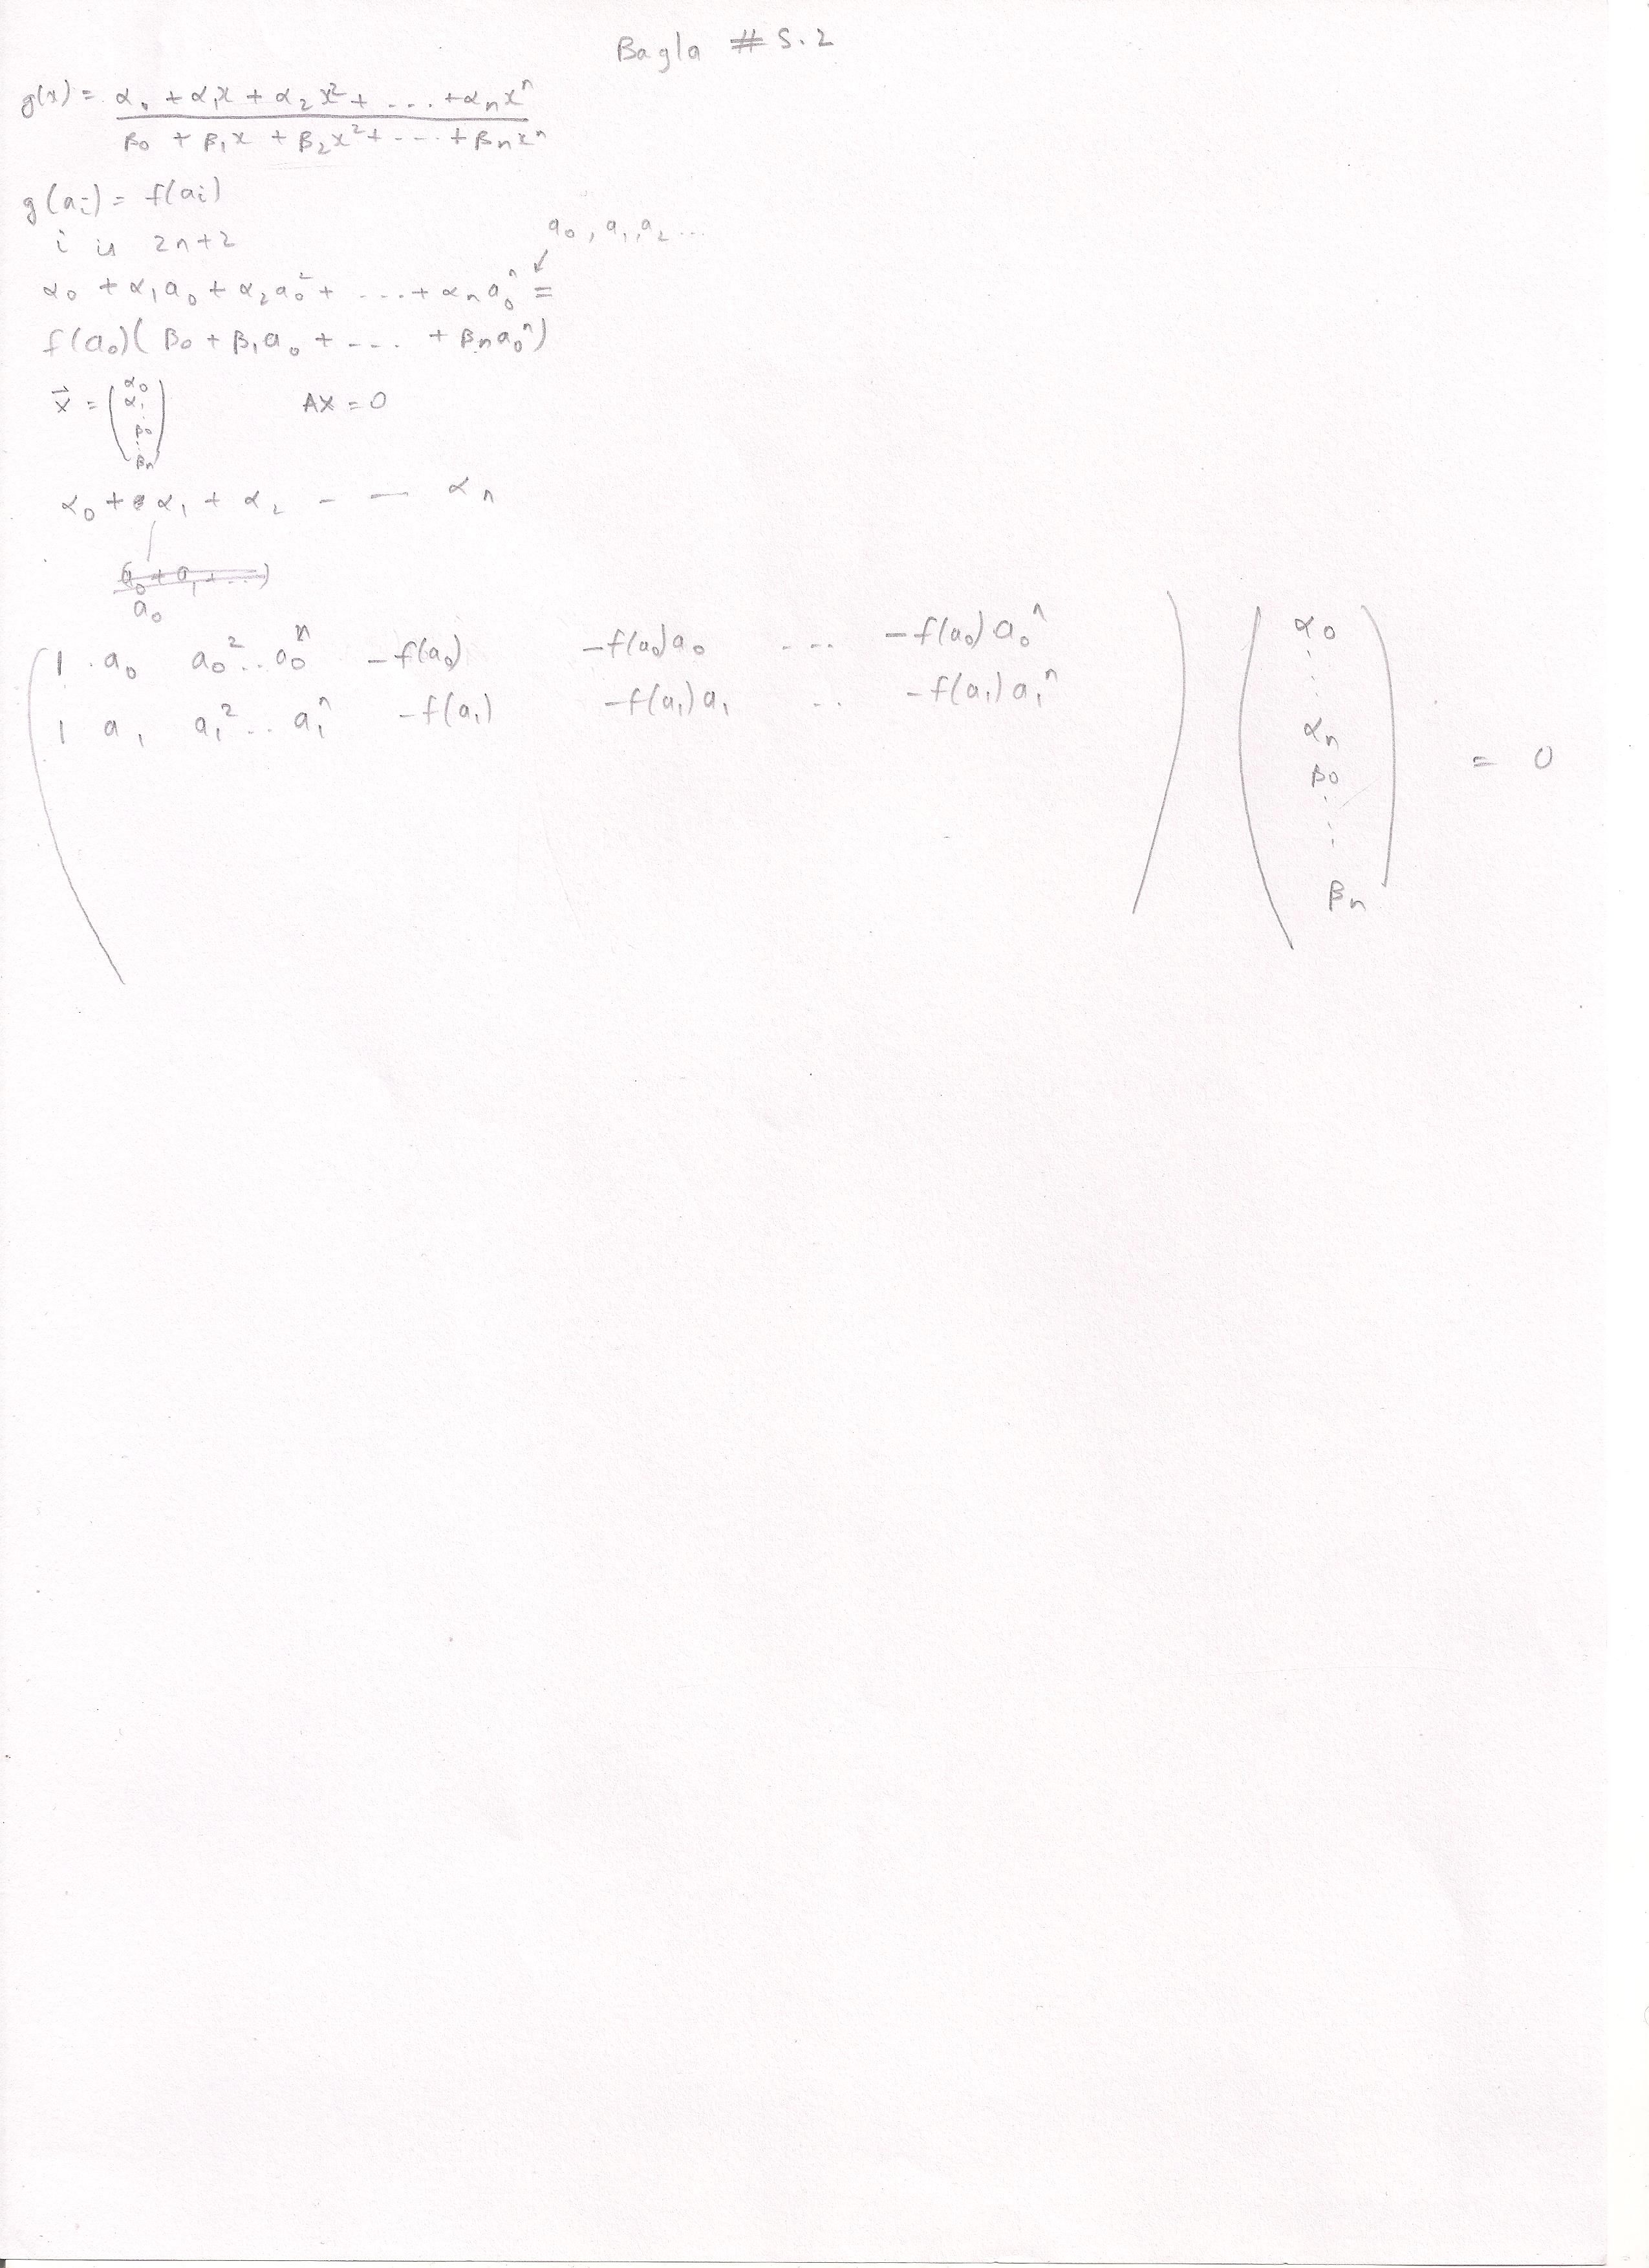 Bagla # 5.2
g(x) = α₀ + α₁x + α₂x² + .... + αₙxⁿ
β₀ + β₁x + β₂x² + .... + βₙxⁿ
g(aᵢ) = f(aᵢ)
i is 2n+2
a₀, a₁, a₂ ...
α₀ + α₁a₀ + α₂a₀² + .... + αₙa₀ⁿ =
f(a₀)( β₀ + β₁a₀ + .... + βₙa₀ⁿ)
x⃗ = ( α₀ α₁ : β₀ : βₙ ) AX = 0
α₀ + α₁ + α₂ - — αₙ
(a₀ + a₁ + ...)
a₀
1 a₀ a₀² .. a₀ⁿ -f(a₀) -f(a₀)a₀ ... -f(a₀)a₀ⁿ
1 a₁ a₁² .. a₁ⁿ -f(a₁) -f(a₁)a₁ .. -f(a₁)a₁ⁿ
α₀
⋮
αₙ
β₀ = 0
⋮
βₙ